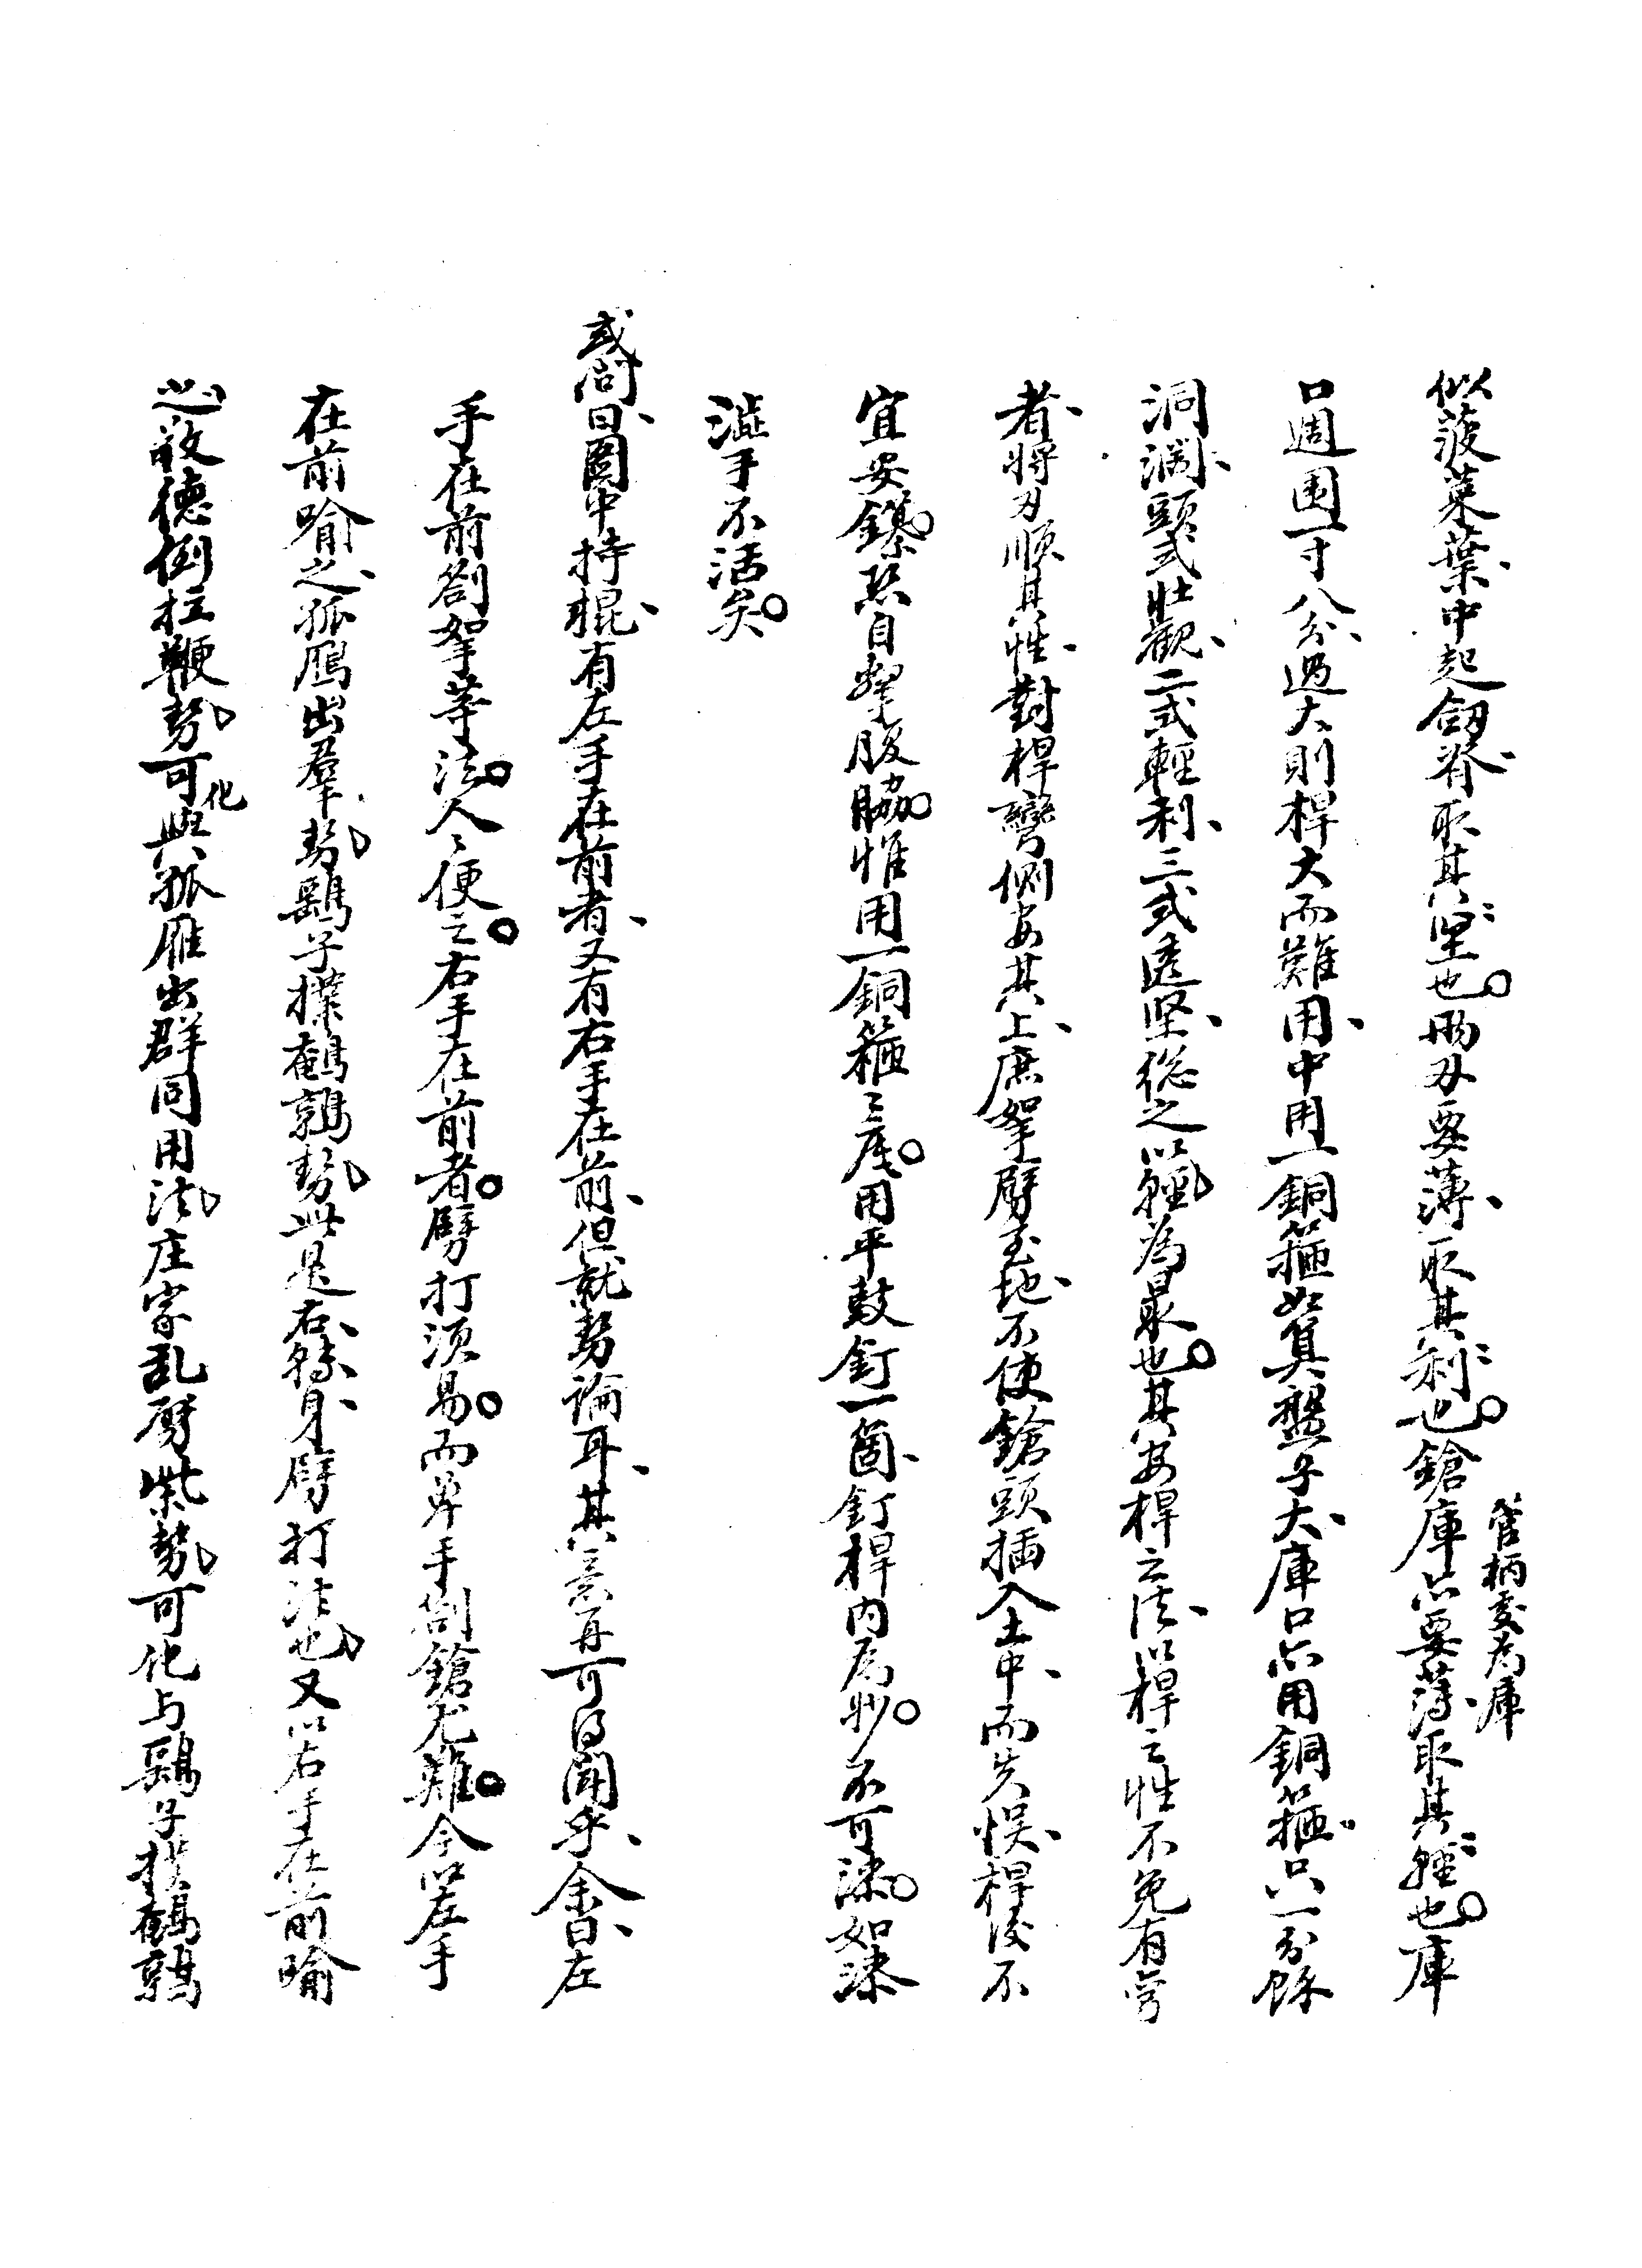 似菠菜葉中起劔脊取其堅也兩刃要薄取其利也鎗庫亦要薄取其輕也庫
管柄處為庫
口週围一寸八分過大則桿大而難用中用一銅箍如算盤子大庫口亦用銅箍只一分餘
洞漏頭式壯觀二式輕利三式透坚総之以輕為最也其安桿之法以桿之性不免有弯
者將刃順其性對桿彎側安其上庶拏劈至地不使鎗頭插入土中而失悮桿後不
宜安鐏恐自拏腹脇惟用一銅箍箍底用平鼓釘一箇釘桿内為妙不可漆如漆
澁手不活矣
或問曰圖中持棍有左手在前者又有右手在前但就勢論耳其意再可得聞乎余曰左
手在前劄拏等法人人便之右手在前者劈打須易而单手劄鎗尤難今以左手
在前喻之孤鴈出羣勢鷂子撲鵪鶉勢此是右轉身劈打法也又以右手在前喻
之敬德倒拉鞭勢可化與孤雁出群同用法庄家乱劈柴勢可化与鷂子撲鵪鶉